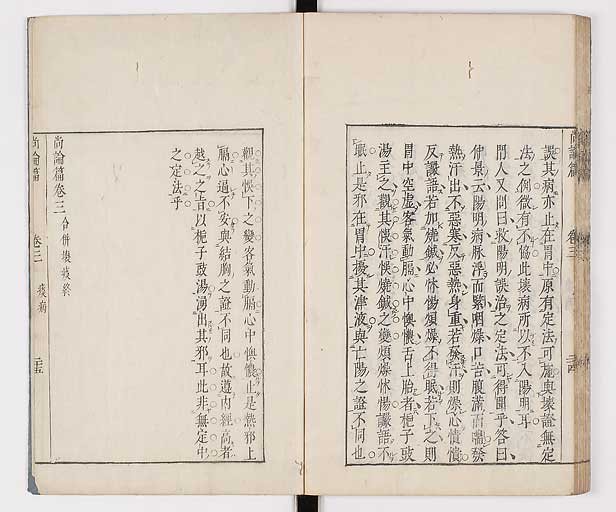 誤其病亦止在胃中原有定法可施與壞證無定
法之例微有不恊此壞病所以不入陽明耳
門人又問曰救陽明誤治之定法可得聞乎答曰
仲景云陽明病脉浮而緊咽燥口苦腹滿而喘發
熱汗出不惡寒反惡熱身重若發汗則燥心憒憒
反讝語若加燒鍼必怵惕煩燥不得眠若下之則
胃中空虛客氣動膈心中懊憹舌上胎者梔子豉
湯主之觀其悞汗悞燒鍼之變煩燥怵惕讝語不
眠止是邪在胃中擾其津液與亡陽之證不同也
尚論篇
卷三
觀其悞下之變客氣動膈心中懊憹止是熱邪上
膈心逼不安與結胸之證不同也故遵內經高者
越之之旨以梔子豉湯湧出其邪耳此非無定中
之定法乎
尚論篇卷三
尚論篇
卷三
二十五